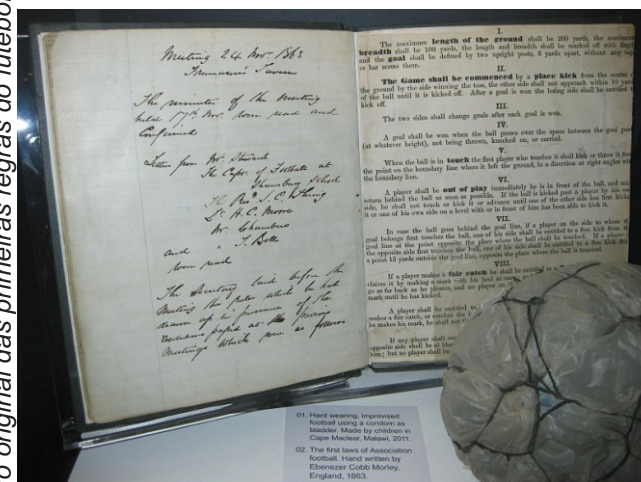 o original das primeiras regras do futebol
Meeting 24 Nov. 1863
Freemasons Tavern
The minutes of the Meeting
held 17th Nov. were read and
Confirmed
Letters from Mr. Steward
The Capt. of Football at
Shrewsbury School
The Revd. J. C. Thring
Mr. Chambers
and " J. Bell
were read
The Secretary laid before the
Meeting the rules which he had
drawn up in pursuance of the
resolutions passed at the previous
Meetings which were as follows
I.
The maximum length of the ground shall be 200 yards, the maximum
breadth shall be 100 yards, the length and breadth shall be marked off with flags
and the goal shall be defined by two upright posts, 8 yards apart, without any tape
or bar across them.
II.
The Game shall be commenced by a place kick from the centre
the ground by the side winning the toss, the other side shall not approach within 10 yards
of the ball until it is kicked off. After a goal is won the losing side shall be entitled
kick off.
III.
The two sides shall change goals after each goal is won.
IV.
A goal shall be won when the ball passes over the space between the goal posts
(at whatever height), not being thrown, knocked on, or carried.
V.
When the ball is in touch the first player who touches it shall kick or throw it from
the point on the boundary line where it left the ground, in a direction at right angles with
the boundary line.
VI.
A player shall be out of play immediately he is in front of the ball, and must
return behind the ball as soon as possible. If the ball is kicked past a player by his own
side, he shall not touch or kick it or advance until one of the other side has first kicked
it or one of his own side on a level with or in front of him has been able to kick it.
VII.
In case the ball goes behind the goal line, if a player on the side to whom the
goal belongs first touches the ball, one of his side shall be entitled to a free kick from the
goal line at the point opposite the place where the ball shall be touched. If a player of
the opposite side first touches the ball, one of his side shall be entitled to a free kick from
a point 15 yards outside the goal line, opposite the place where the ball is touched.
VIII.
If a player makes a fair catch he shall be entitled to
claims it by making a mark with his heel at once;
go as far back as he pleases, and no player on
mark until he has kicked.
A player shall be entitled to
makes a fair catch, or catches the
he makes his mark, he shall not
If any player shall
opposite side shall be at
him; but no player shall be
01. Hard wearing, improvised
football using a condom as
bladder. Made by children in
Cape Maclear, Malawi, 2011.
02. The first laws of Association
football. Hand written by
Ebenezer Cobb Morley,
England, 1863.